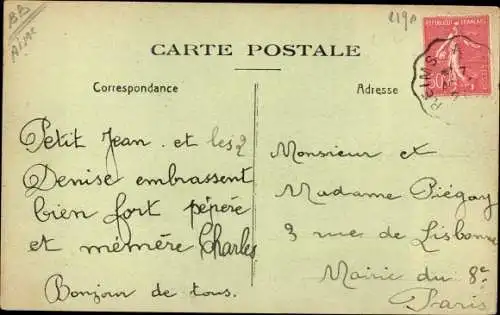 BB
2190
CARTE POSTALE
Correspondance
Adresse
REPUBLIQUE FRANÇAISE
REIMS A
Petit Jean et les 2
Denise embrassent
bien fort pépère
et mémère Charles
Bonjour de tous.
Monsieur et
Madame Piégay
3 rue de Lisbonne
Mairie du 8e
Paris